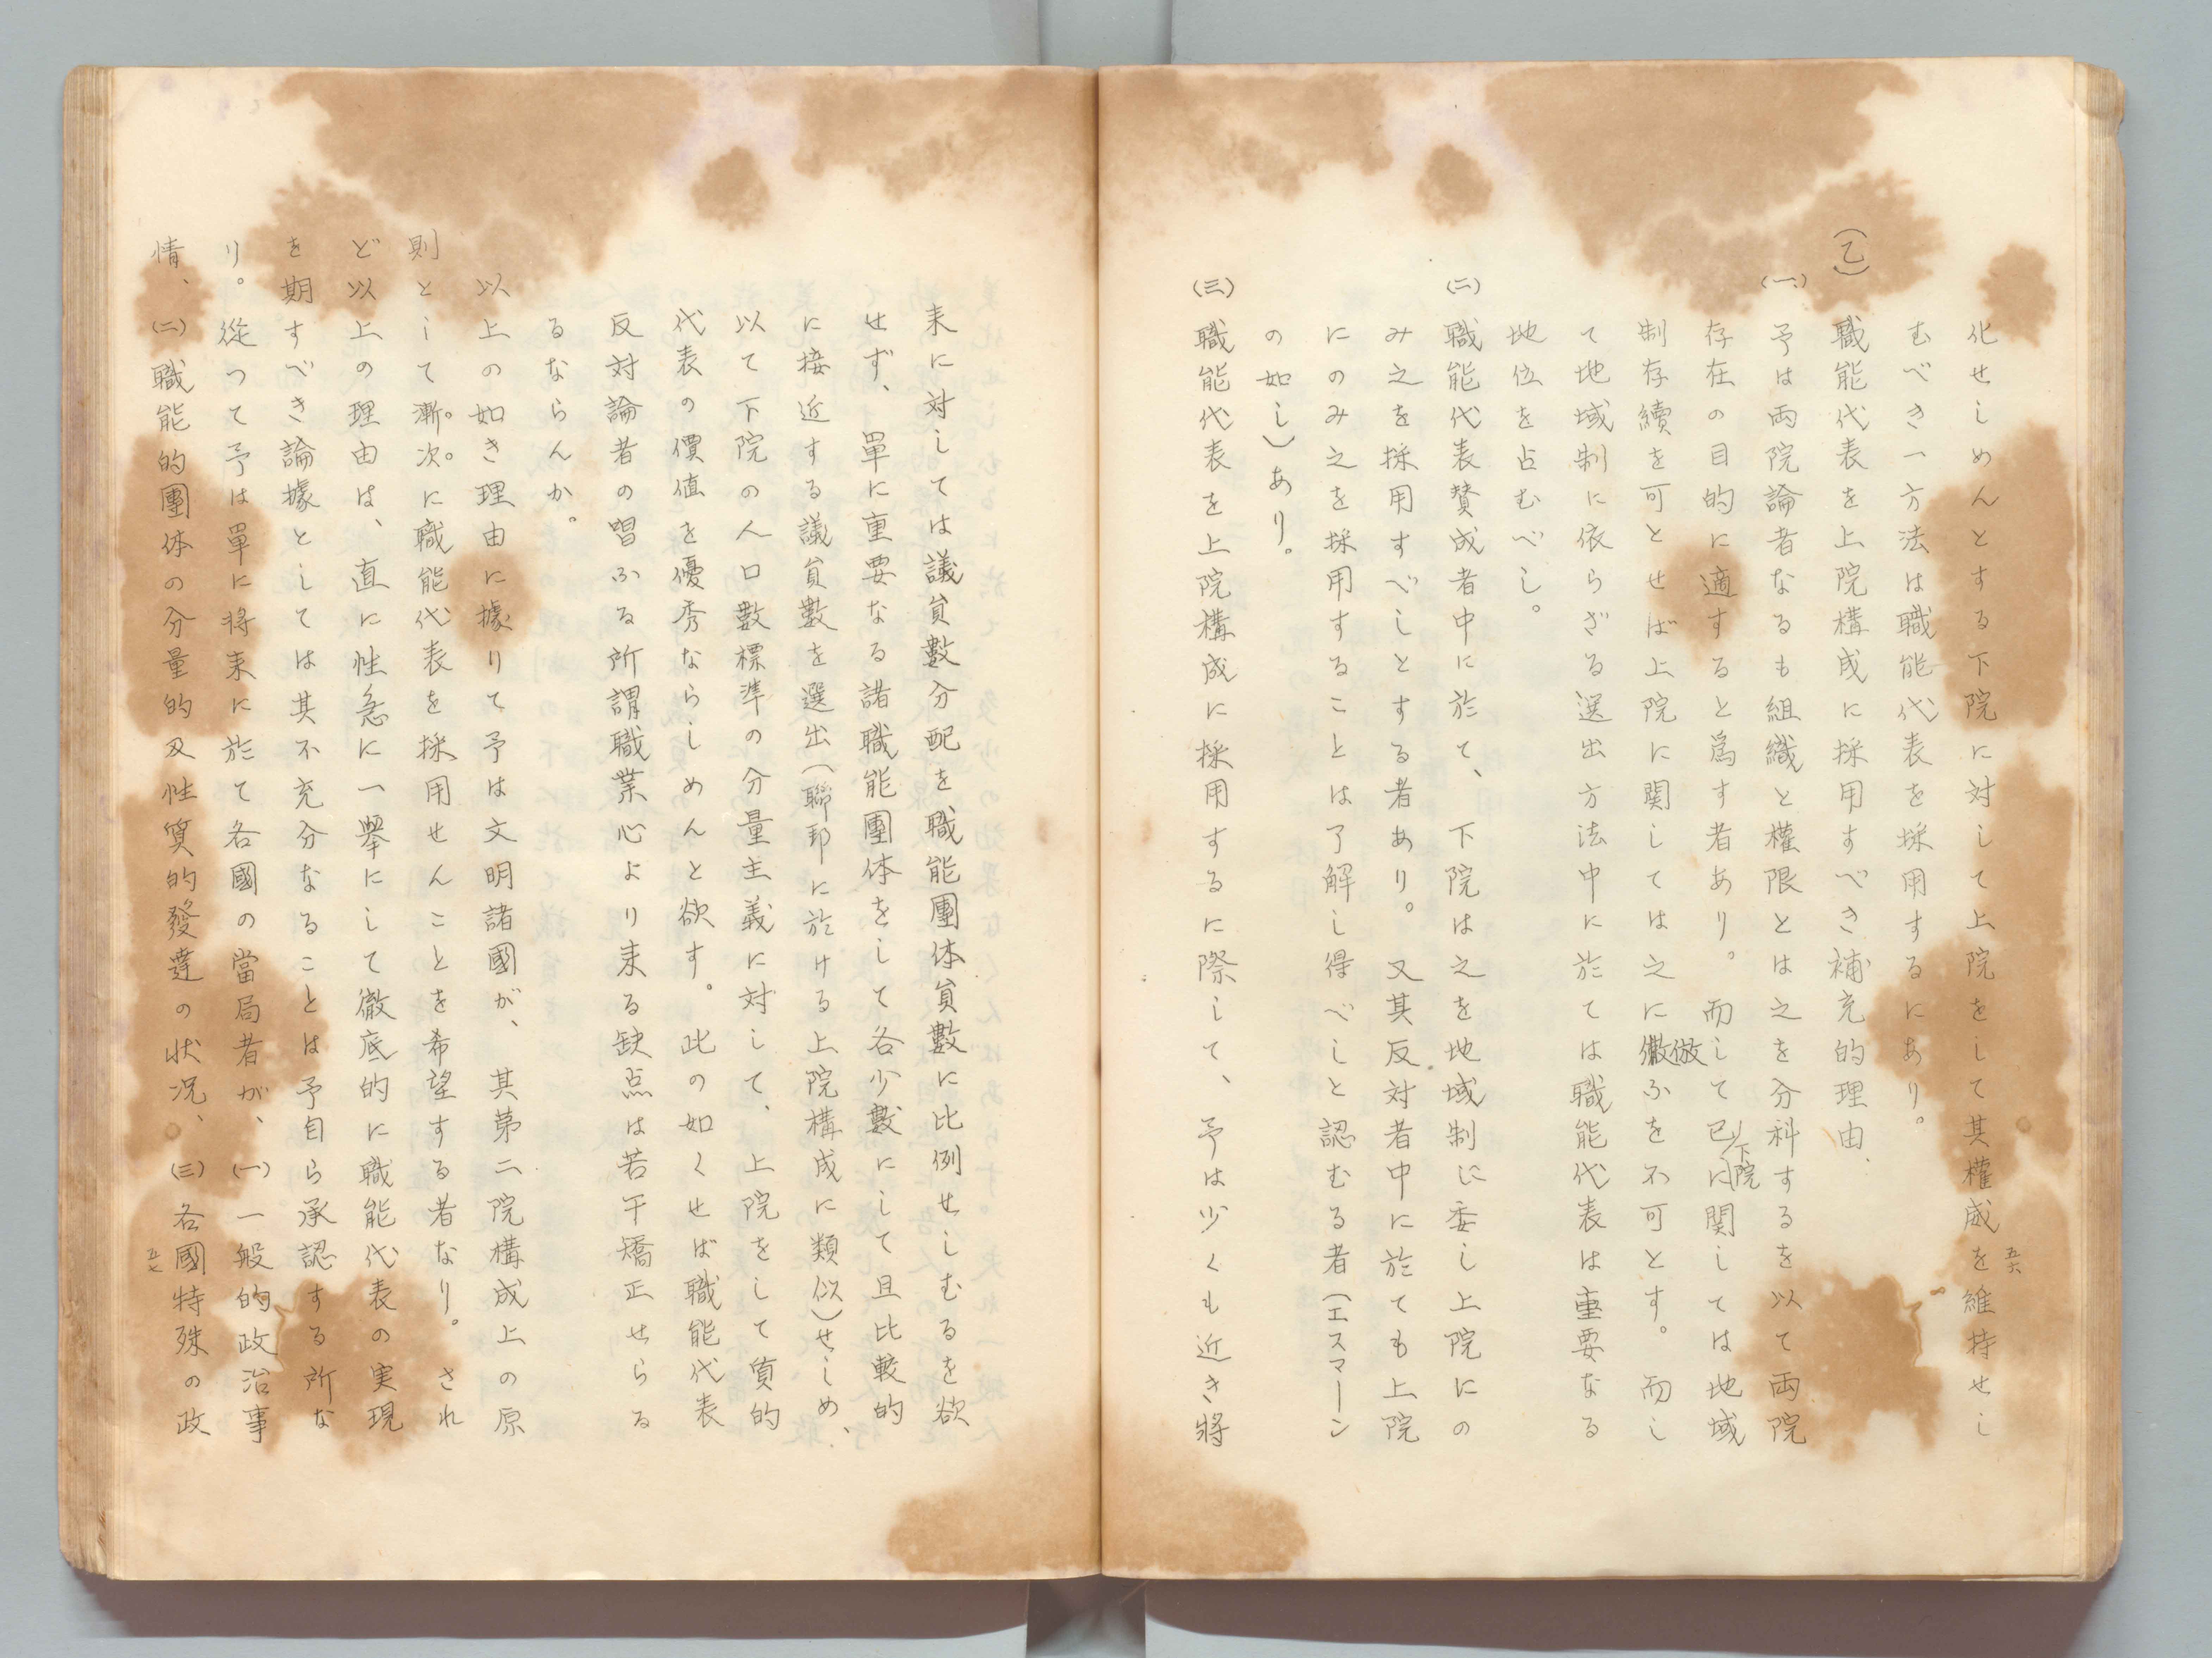 化せしめんとする下院に対して上院をして其權威を維持せし
むべき一方法は職能代表を採用するにあり。
(乙) 職能代表を上院構成に採用すべき補充的理由.
(一) 予は両院論者なるも組織と權限とは之を分科するを以て両院
存在の目的に適すると爲す者あり。而して已に下院に関しては地域
制存續を可とせば上院に関しては之に倣ふを不可とす。而し
て地域制に依らざる選出方法中に於ては職能代表は重要なる
地位を占むべし。
(二) 職能代表賛成者中に於て、下院は之を地域制に委し上院にの
み之を採用すべしとする者あり。又其反対者中に於ても上院
にのみ之を採用することは了解し得べしと認むる者(エスマーン
の如し)あり。
(三) 職能代表を上院構成に採用するに際して、予は少くも近き將
五六
来に対しては議員數分配を職能團体員數に比例せしむるを欲
せず、單に重要なる諸職能團体をして各少數にして且比較的
に接近する議員數を選出(聯邦に於ける上院構成に類似)せしめ、
以て下院の人口數標準の分量主義に対して、上院をして質的
代表の價値を優秀ならしめんと欲す。此の如くせば職能代表
反対論者の唱ふる所謂職業心より来る缺点は若干矯正せらる
るならんか。
以上の如き理由に據りて予は文明諸國が、其第二院構成上の原
則として漸。次。に職能代表を採用せんことを希望する者なり。され
ど以上の理由は、直に性急に一擧にして徹底的に職能代表の実現
を期すべき論據としては其不充分なることは予自ら承認する所な
り。從つて予は單に将来に於て各國の當局者が、(一)一般的政治事
情、(二)職能的團体の分量的及性質的發達の状况、(三)各國特殊の政
五七